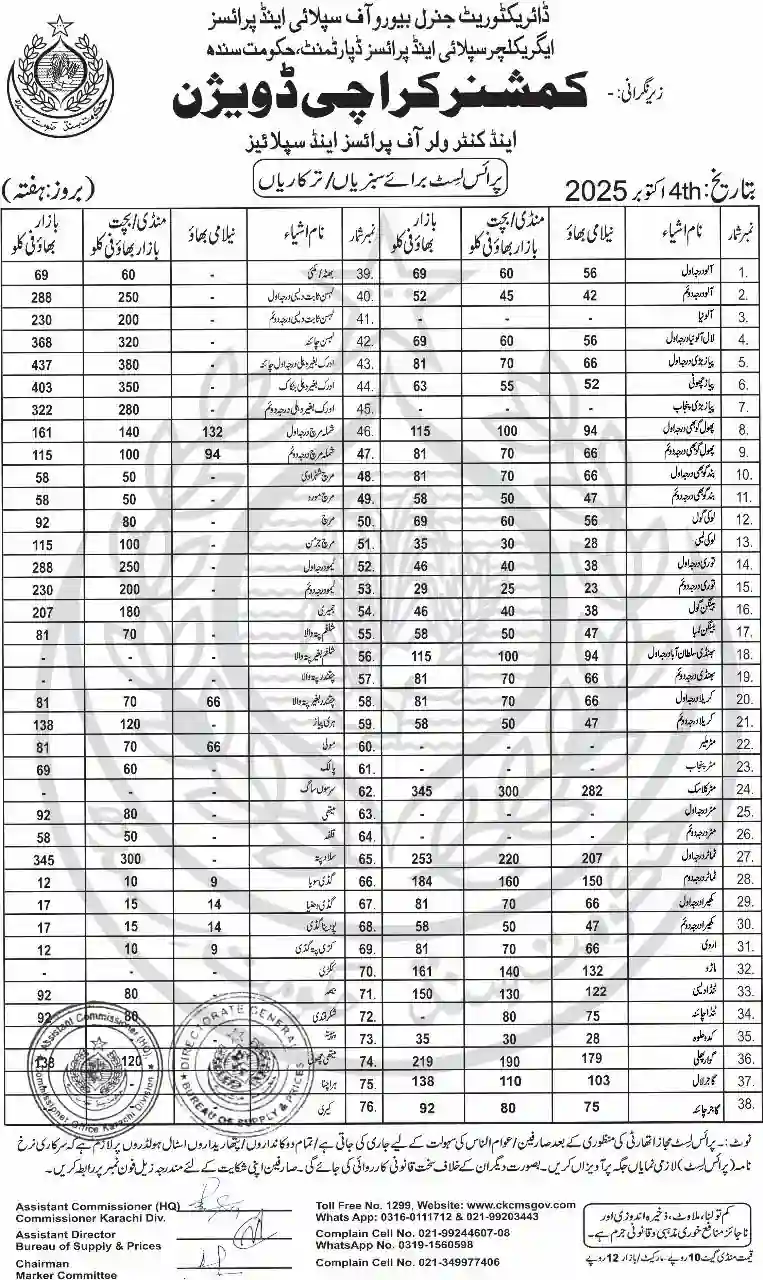 ڈائریکٹوریٹ جنرل بیورو آف سپلائی اینڈ پرائسز
ایگریکلچر سپلائی اینڈ پرائسز ڈپارٹمنٹ، حکومت سندھ
زیر نگرانی:-
کمشنر کراچی ڈویژن
اینڈ کنٹرولر آف پرائسز اینڈ سپلائیز
بتاریخ: 4th اکتوبر 2025 پرائس لسٹ برائے سبزیاں/ترکاریاں (بروز: ہفتہ)
نمبر شمار نام اشیاء نیلامی بھاؤ منڈی/بچت بازار بھاؤ فی کلو بازار بھاؤ فی کلو نمبر شمار نام اشیاء نیلامی بھاؤ منڈی/بچت بازار بھاؤ فی کلو بازار بھاؤ فی کلو
1. آلو درجہ اول 56 60 69 39. بھٹہ/مکئی - 60 69
2. آلو درجہ دوئم 42 45 52 40. لہسن ثابت دیسی درجہ اول - 250 288
3. آلو نیا - - - 41. لہسن ثابت دیسی درجہ دوئم - 200 230
4. لال آلو نیا درجہ اول 56 60 69 42. لہسن چائنہ - 320 368
5. پیاز بڑی درجہ اول 66 70 81 43. ادرک بغیر دھلی درجہ اول چائنہ - 380 437
6. پیاز چھوٹی 52 55 63 44. ادرک بغیر دھلی بنکاک - 350 403
7. پیاز بڑی پنجاب - - - 45. ادرک بغیر دھلی درجہ دوئم - 280 322
8. پھول گوبھی درجہ اول 94 100 115 46. شملہ مرچ درجہ اول 132 140 161
9. پھول گوبھی درجہ دوئم 66 70 81 47. شملہ مرچ درجہ دوئم 94 100 115
10. بند گوبھی درجہ اول 66 70 81 48. مرچ شہزادی - 50 58
11. بند گوبھی درجہ دوئم 47 50 58 49. مرچ مورو - 50 58
12. لوکی گول 56 60 69 50. مرچ - 80 92
13. لوکی لمبی 28 30 35 51. مرچ جرمن - 100 115
14. توری درجہ اول 38 40 46 52. لیمو درجہ اول - 250 288
15. توری درجہ دوئم 23 25 29 53. لیمو درجہ دوئم - 200 230
16. بینگن گول 38 40 46 54. جمیری - 180 207
17. بینگن لمبا 47 50 58 55. شلغم پتہ والا - 70 81
18. بھنڈی سلطان آباد درجہ اول 94 100 115 56. شلغم بغیر پتہ والا - - -
19. بھنڈی درجہ دوئم 66 70 81 57. چقندر پتہ والا - - -
20. کریلا درجہ اول 66 70 81 58. چقندر بغیر پتہ والا 66 70 81
21. کریلا درجہ دوئم 47 50 58 59. ہری پیاز - 120 138
22. مٹر ملیر - - - 60. مولی 66 70 81
23. مٹر پنجاب - - - 61. پالک - 60 69
24. مٹر کلاسک 282 300 345 62. سرسوں ساگ - - -
25. مٹر درجہ اول - - - 63. میتھی - 80 92
26. مٹر درجہ دوئم - - - 64. قلفہ - 50 58
27. ٹماٹر درجہ اول 207 220 253 65. سلاد پتہ - 300 345
28. ٹماٹر درجہ دوم 150 160 184 66. گڈی سویا 9 10 12
29. کھیرا درجہ اول 66 70 81 67. گڈی دھنیا 14 15 17
30. کھیرا درجہ دوئم 47 50 58 68. پودینا گڈی 14 15 17
31. اروی 66 70 81 69. کڑی پتہ گڈی 9 10 12
32. ماڑو 132 140 161 70. ککڑی - - -
33. ٹنڈا دیسی 122 130 150 71. - 80 92
34. ٹنڈا چائنہ - - - 72. شکرقندی 80 92
35. کدو حلوہ 28 30 35 73.
36. گوار پھلی 179 190 219 74. میتھی چھوٹی 120 138
37. گاجر لال 103 110 138 75. ہرا چنا
38. گاجر چائنہ 75 80 92 76. کیری
نوٹ:- پرائس لسٹ مجاز اتھارٹی کی منظوری کے بعد صارفین/عوام الناس کی سہولت کے لیے جاری کی جاتی ہے/تمام دوکانداروں/پتھاریداروں اسٹال ہولڈروں پر لازم ہے کہ سرکاری نرخ
نامہ (پرائس لسٹ) لازمی نمایاں جگہ پر آویزاں کریں۔ بصورت دیگر ان کے خلاف سخت قانونی کارروائی کی جائے گی۔ صارفین اپنی شکایت کے لئے مندرجہ زیل فون نمبر پر رابطہ کریں۔
Assistant Commissioner (HQ)
Commissioner Karachi Div.
Assistant Director
Bureau of Supply & Prices
Chairman
Marker Committee
Toll Free No. 1299, Website: www.ckcmsgov.com
Whats App: 0316-0111712 & 021-99203443
Complain Cell No. 021-99244607-08
WhatsApp No. 0319-1560598
Complain Cell No. 021-349977406
کم تولنا، ملاوٹ، ذخیرہ اندوزی اور
ناجائز منافع خوری مذہبی و قانونی جرم ہے۔
قیمت منڈی گیٹ 10 روپے - مارکیٹ/بازار 12 روپے
Assistant Commissioner (HQ)
Commissioner Office Karachi Division
DIRECTORATE GENERAL
BUREAU OF SUPPLY & PRICES